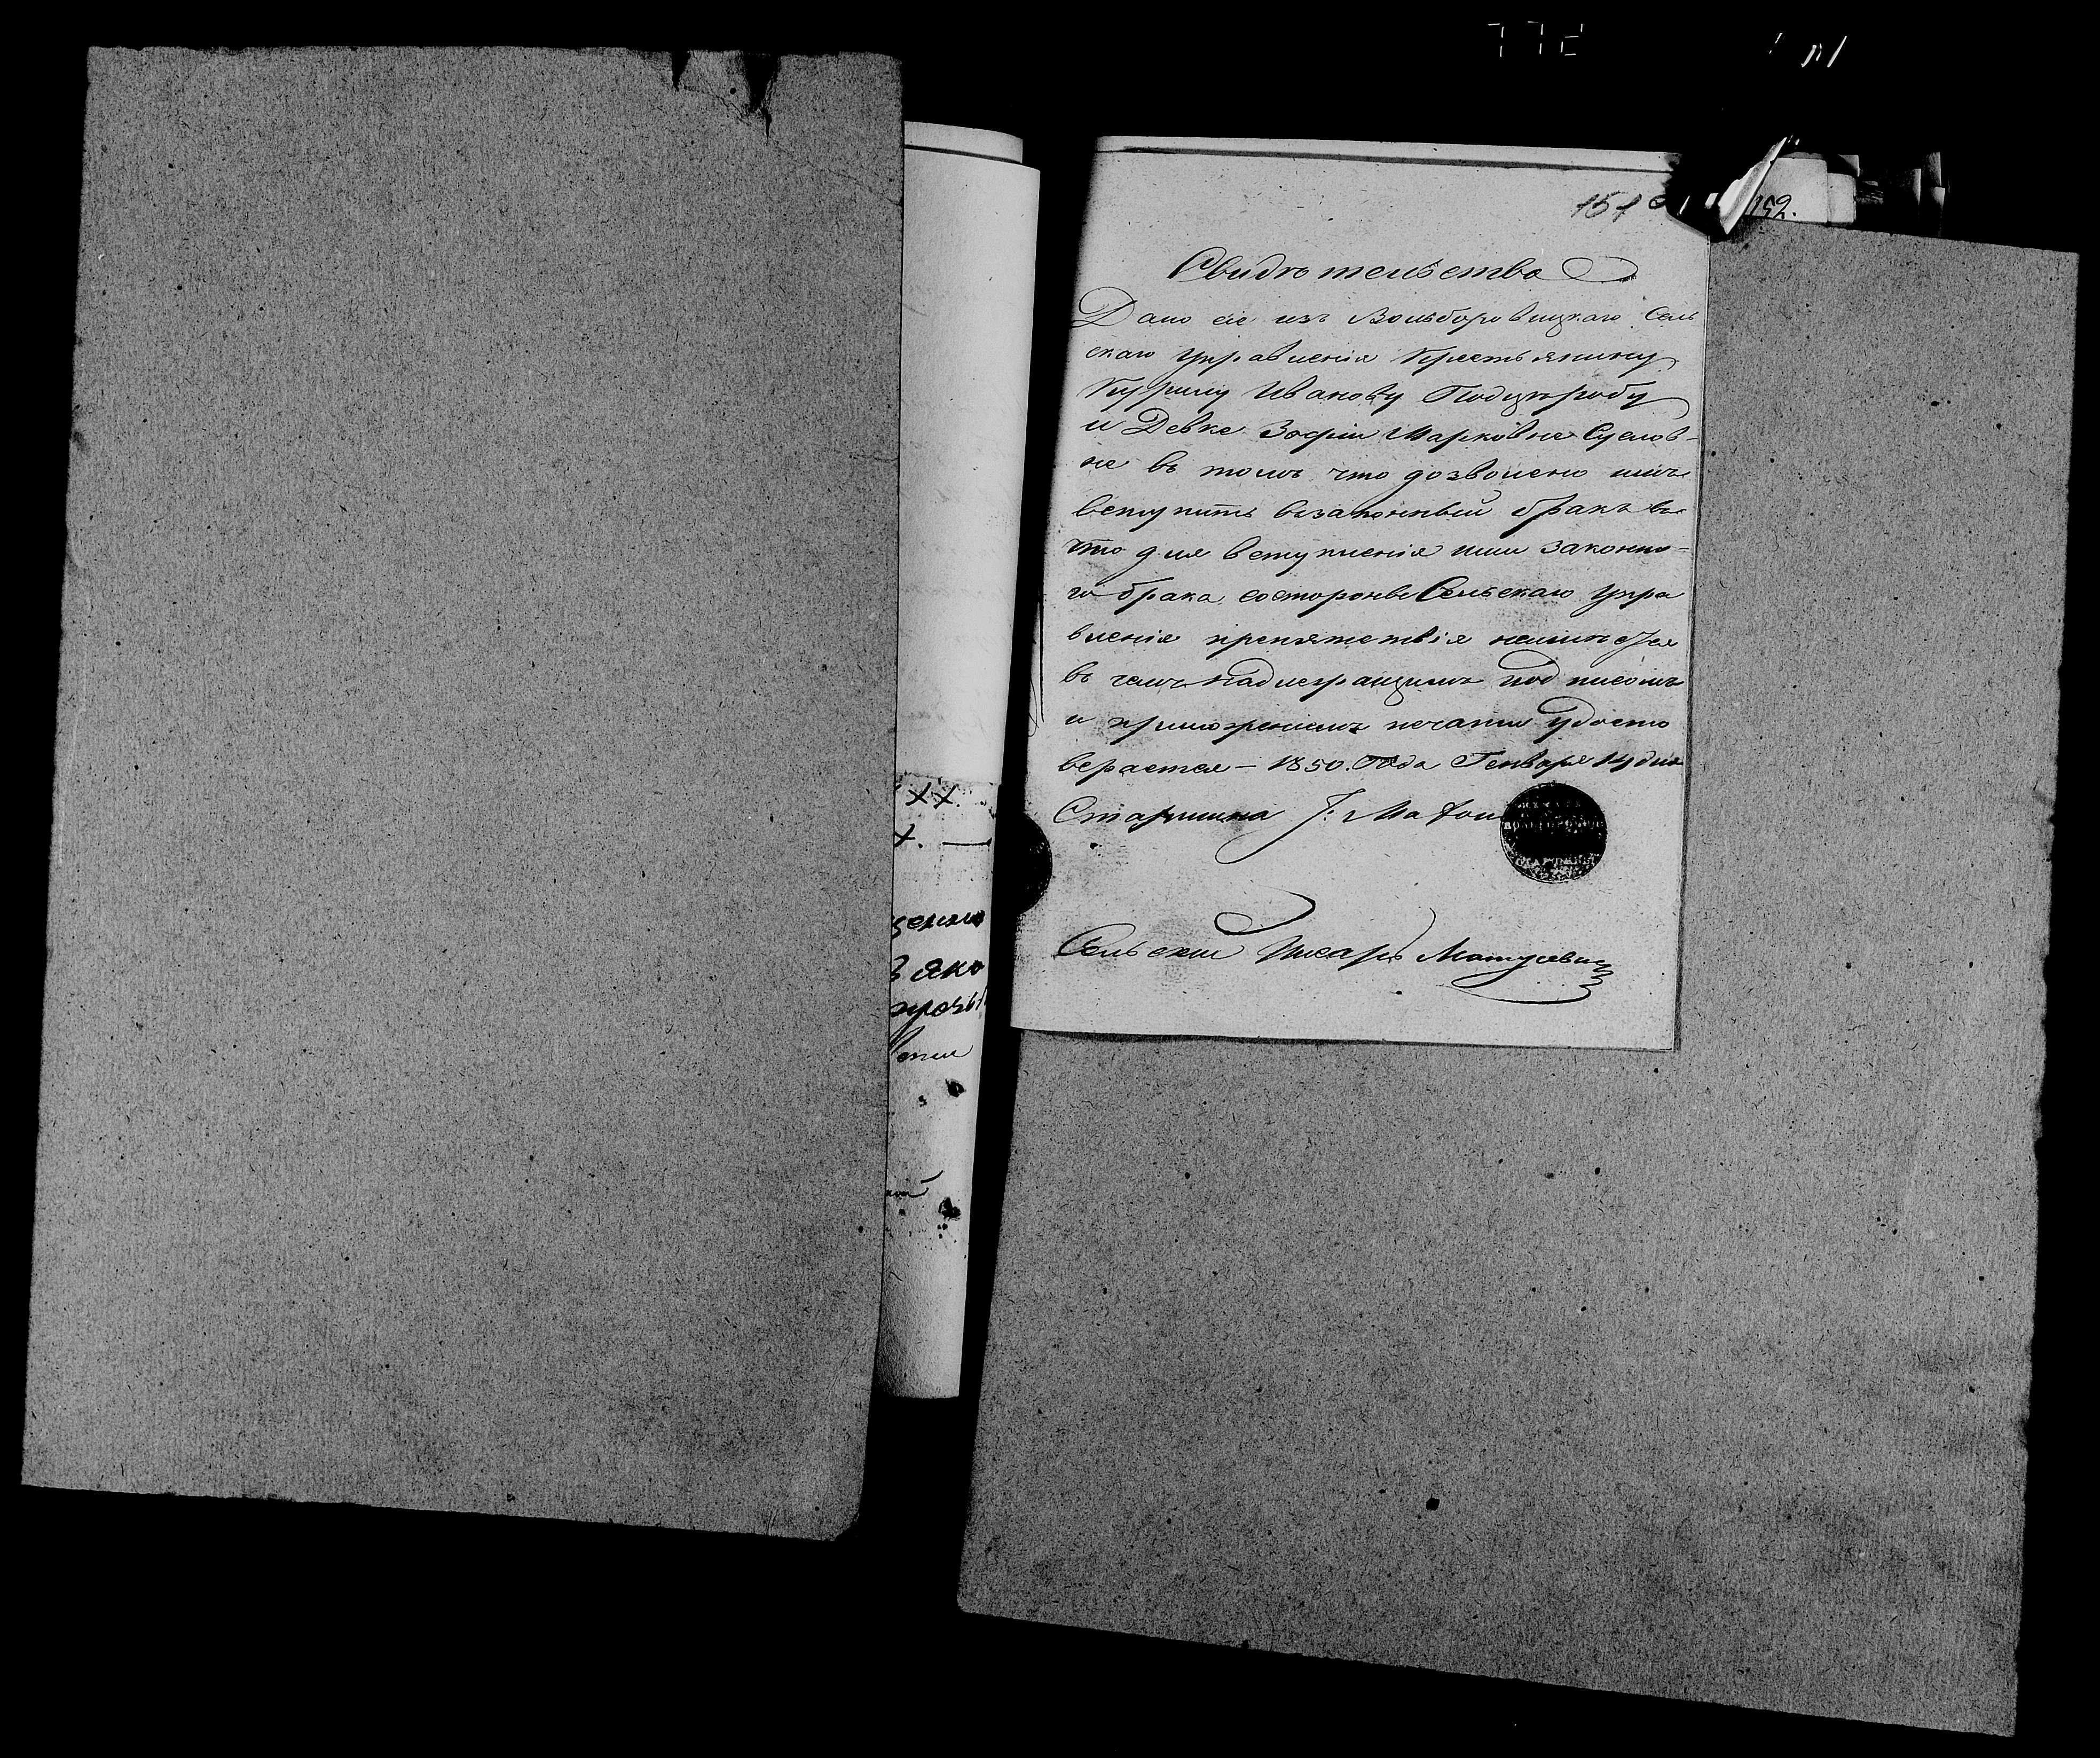 151
152.
Свидетельство
Дано сіе изъ Вольборовицкаго Сель
скаго Управленія Крестьянину
Курилу Иванову
и Девке Зофіи Марковне Суслов-
не въ томъ что дозволено имъ
вступить взаконный бракъ
что для вступленія ими законно-
го брака состороны Сельскаго Упра
вленія препятствія неимеется
въ чемъ подписомъ
и приложениемъ печати Удосто
веряется — 1850. Года Генваря 14 дня
Старшина
Сельски Писарь Матусевич